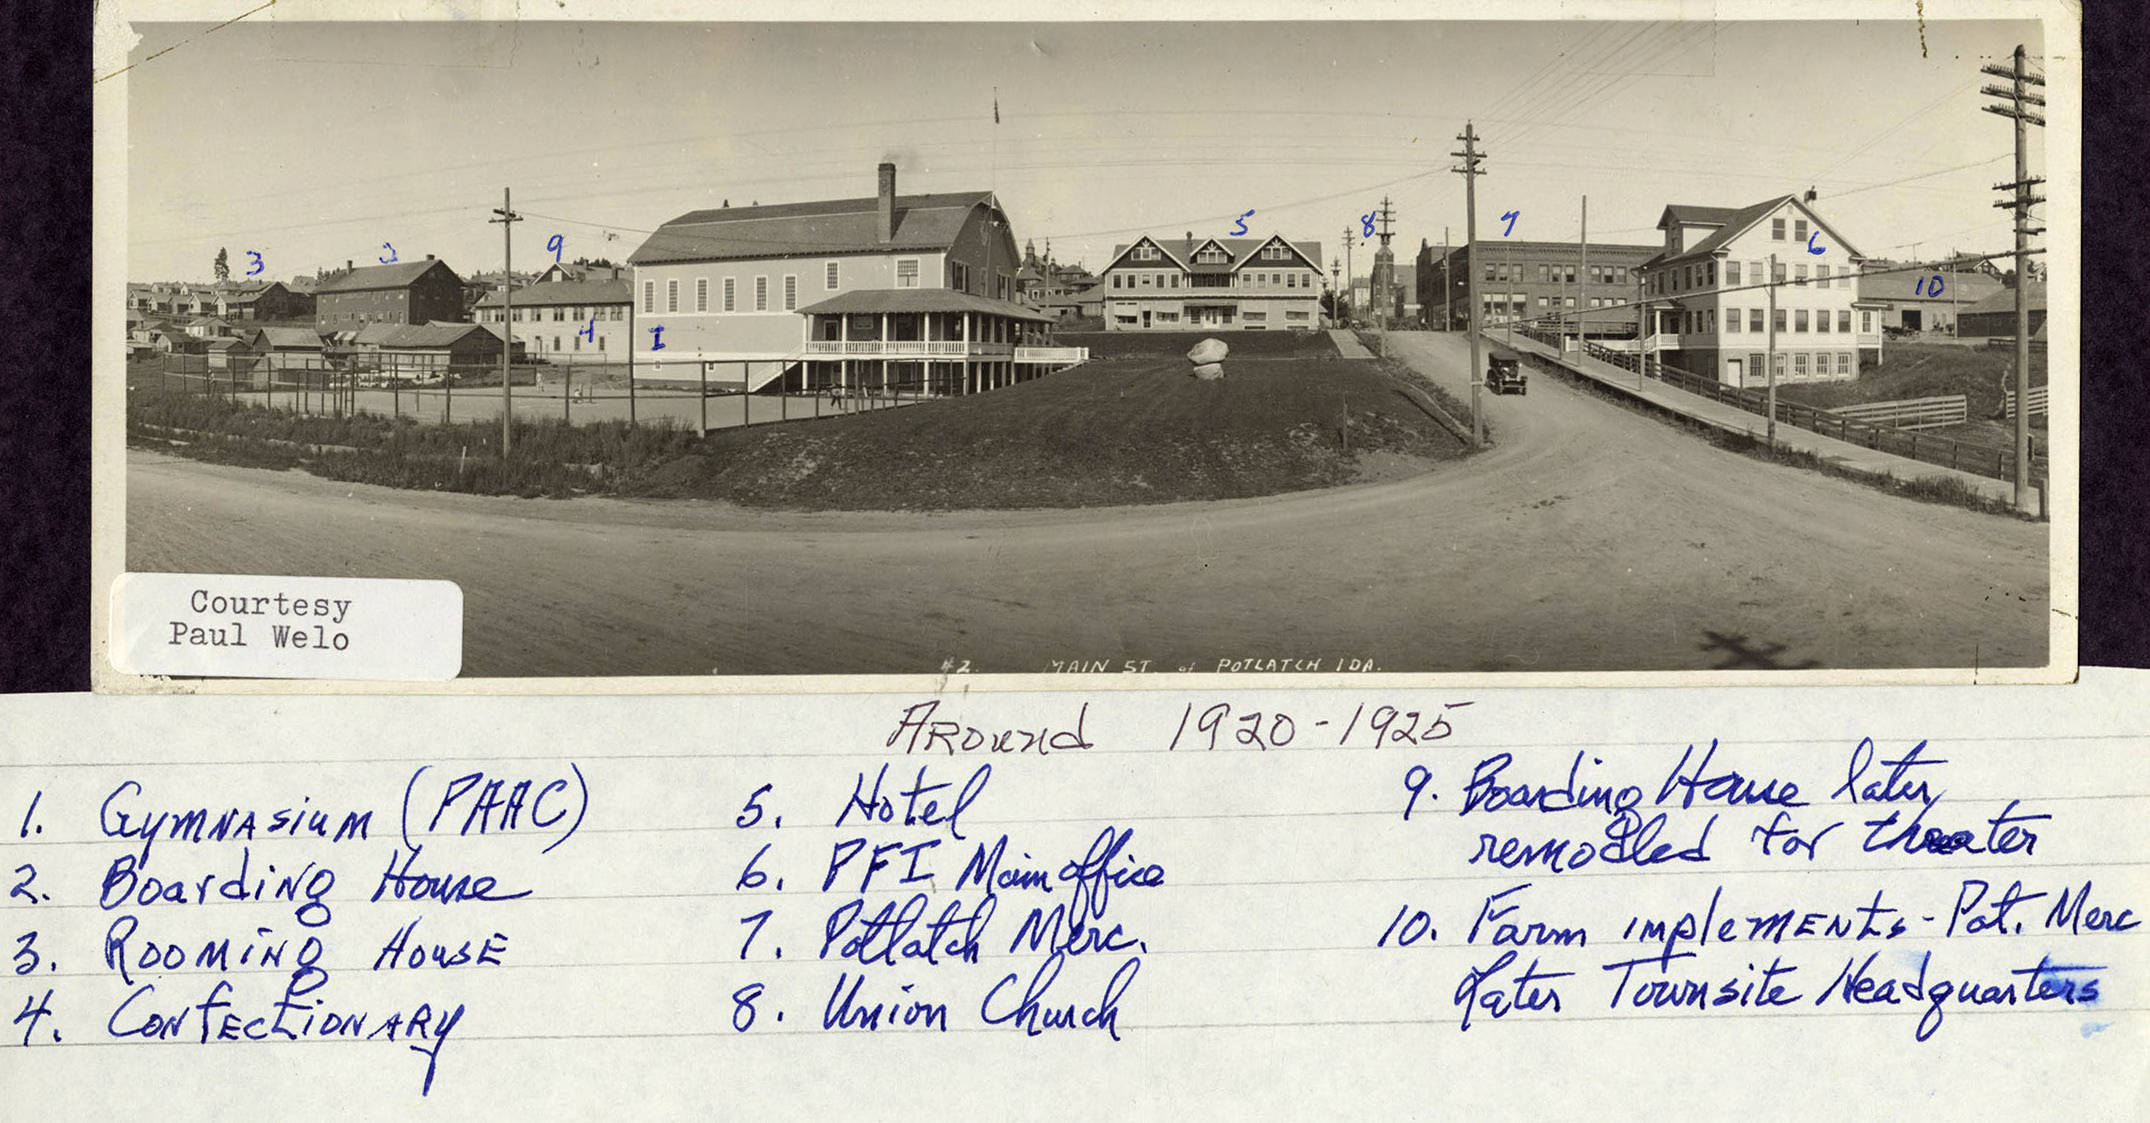 3
2
9
4
1
5
8
7
6
10
Courtesy
Paul Welo
#2. MAIN ST. of POTLATCH IDA.
Around 1920-1925
1. Gymnasium (PAAC)
2. Boarding House
3. Rooming House
4. Confectionary
5. Hotel
6. PFI Main office
7. Potlatch Merc.
8. Union Church
9. Boarding House later
remodled for theater
10. Farm implements - Pot. Merc
Later Townsite Headquarters